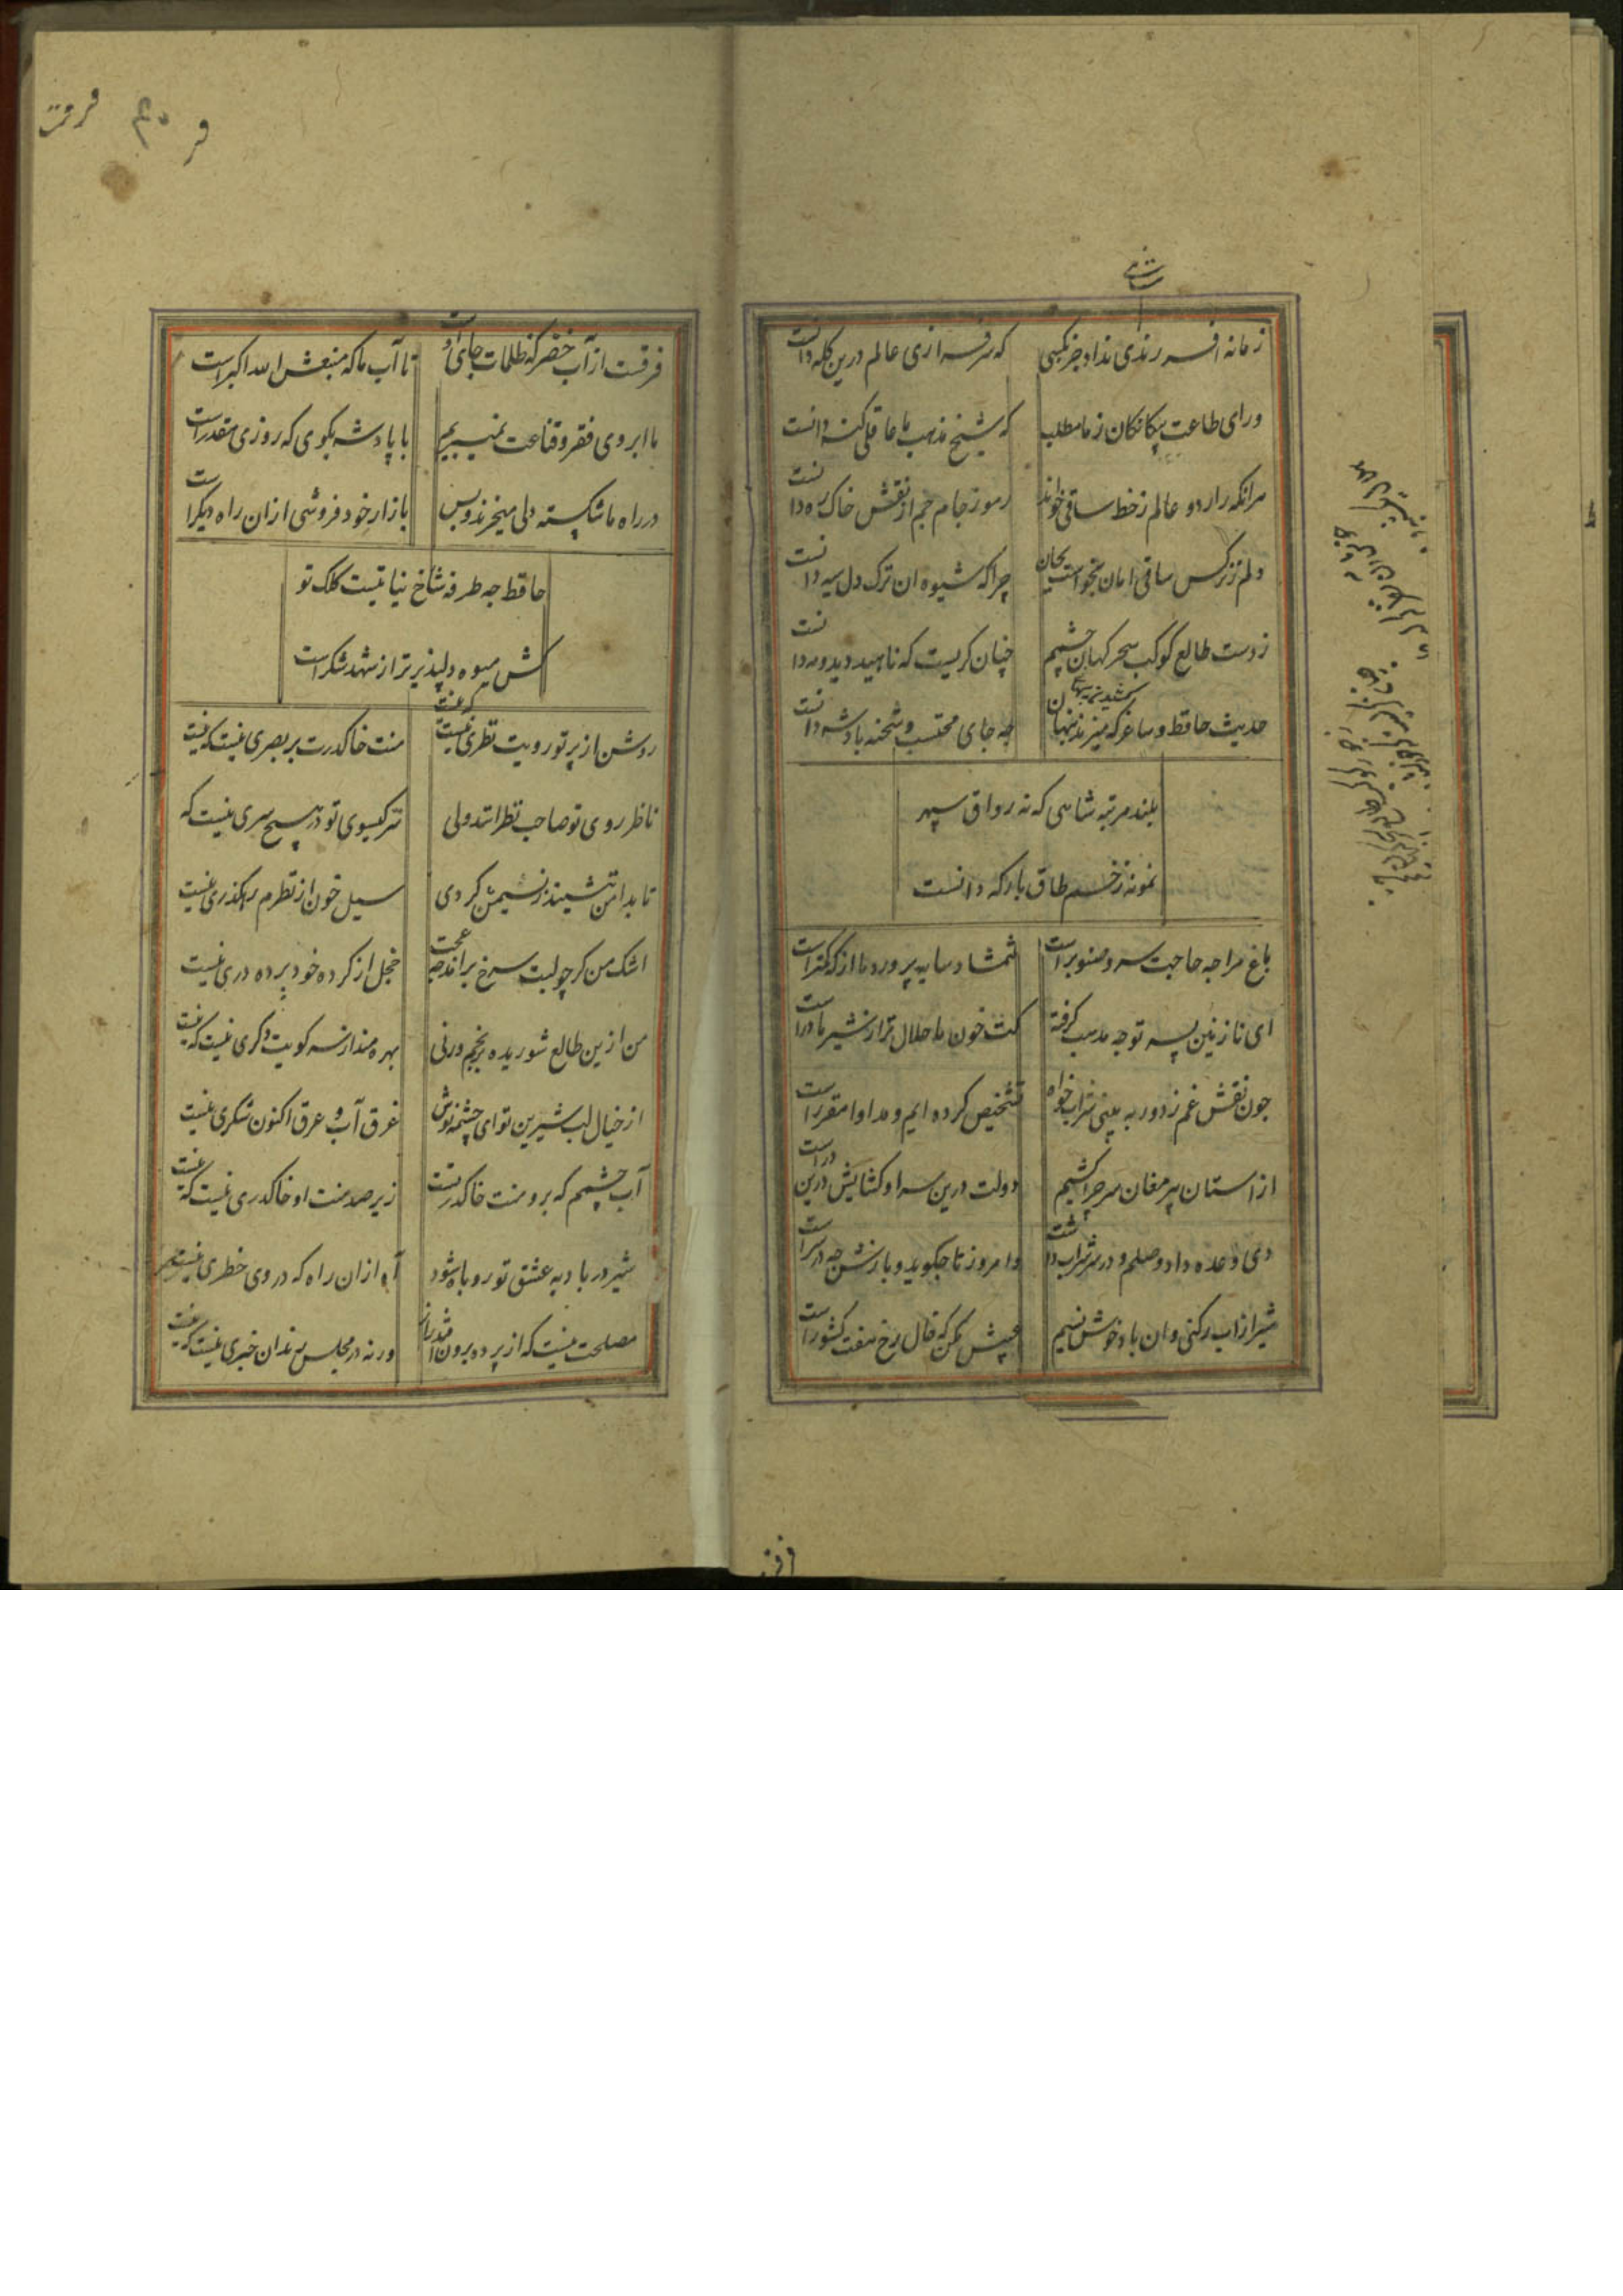 زمانه افسر رندی نداد جز بکسی
که سرفرازی عالم درین کله دانست
ورای طاعت بیکانکان ز ما مطلب
که شیخ مذهب ما عاقلی کنه دانست
هر انکه راز دو عالم ز خط ساقی خواند
رموز جام جم از نقش خاک ره دانست
دلم ز نرکس ساقی امان نخواست بجان
چرا که شیوه ان ترک دل سیه دانست
ز دست طالع کوکب سحر کهان چشم
چنان کریست که ناهید دید و مه دانست
حدیث حافظ و ساغر که میزند پنهان
چه جای محتسب و شحنه پادشه دانست
بلند مرتبه شاهی که نه رواق سپهر
نمونه ز خم طاق بارکه دانست
باغ مرا چه حاجت سرو و صنوبر است
شمشاد سایه پرورد ما از که کمتر است
ای نازنین پسر تو چه مذهب کرفته
کت خون ما حلال تر از شیر مادر است
چون نقش غم ز دور به بینی شراب خواه
تشخیص کرده ایم و مداوا مقرر است
از استان پیر مغان سر چرا کشیم
دولت درین سرا و کشایش درین در است
دی وعده داد وصلم و در سر شراب داشت
و امروز تا چکوید و بازش چه در سر است
شیراز اب رکنی و ان باد خوش نسیم
عیبش مکن که خال رخ هفت کشور است
فرقست از آب خضر که ظلمات جای او است
تا آب ما که منبعش الله اکبر است
ما ابروی فقر و قناعت نمیبریم
با پادشه بکوی که روزی مقدر است
در راه ما شکسته دلی میخرند و بس
بازار خود فروشی ازان راه دیکر است
حافظ چه طرفه شاخ نباتیست کلک تو
کش میوه دلپذیر تر از شهد شکر است
روشن از پرتو رویت نظری نیست که نیست
منت خاکدرت بر بصری نیست که نیست
ناظر روی تو صاحب نظرانند ولی
سر کیسوی تو در هیچ سری نیست که
تا بدامن ننشیند ز نسیمش کردی
سیل خون از نظرم رهکذری نیست
اشک من کر چو لبت سرخ براند چه عجب
خجل از کرده خود پرده دری نیست
من ازین طالع شوریده برنجم ورنی
بهره مند از سر کویت دکری نیست که نیست
از خیال لب شیرین تو ای چشمه نوش
غرق آب و عرق اکنون شکری نیست
آب چشمم که برو منت خاکدر تست
زیر صد منت او خاکدری نیست که نیست
شیر در بادیه عشق تو روباه شود
آه ازان راه که در وی خطری نیست
مصلحت نیست که از پرده برون افتد راز
ورنه در مجلس رندان خبری نیست که نیست